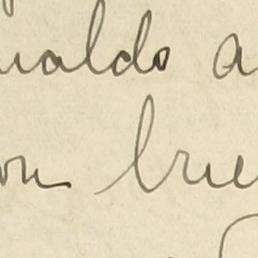 ualdo a
on brie